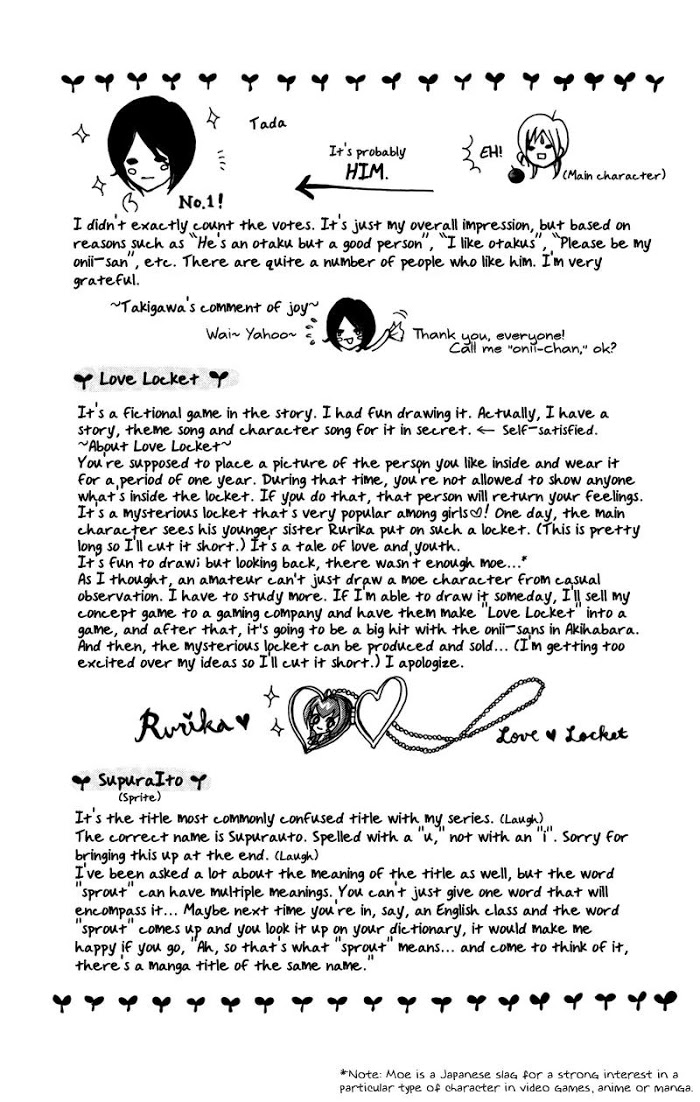 Tada
It's probably
HIM.
EH!
(Main character)
No.1!
I didn't exactly count the votes. It's just my overall impression, but based on
reasons such as "He's an otaku but a good person", "I like otakus", "Please be my
onii-san", etc. There are quite a number of people who like him. I'm very
grateful.
~Takigawa's comment of joy~
Wai~ Yahoo~
Thank you, everyone!
Call me "onii-chan," ok?
Love Locket
It's a fictional game in the story. I had fun drawing it. Actually, I have a
story, theme song and character song for it in secret. ← Self-satisfied.
~About Love Locket~
You're supposed to place a picture of the person you like inside and wear it
for a period of one year. During that time, you're not allowed to show anyone
what's inside the locket. If you do that, that person will return your feelings.
It's a mysterious locket that's very popular among girls♡! One day, the main
character sees his younger sister Rurika put on such a locket. (This is pretty
long so I'll cut it short.) It's a tale of love and youth.
It's fun to draw; but looking back, there wasn't enough moe...*
As I thought, an amateur can't just draw a moe character from casual
observation. I have to study more. If I'm able to draw it someday, I'll sell my
concept game to a gaming company and have them make "Love Locket" into a
game, and after that, it's going to be a big hit with the onii-sans in Akihabara.
And then, the mysterious locket can be produced and sold... (I'm getting too
excited over my ideas so I'll cut it short.) I apologize.
Rurika♥
Love ♥ Locket
SupuraIto
(Sprite)
It's the title most commonly confused title with my series. (Laugh)
The correct name is Supurauto. Spelled with a "u," not with an "i". Sorry for
bringing this up at the end. (Laugh)
I've been asked a lot about the meaning of the title as well, but the word
"sprout" can have multiple meanings. You can't just give one word that will
encompass it... Maybe next time you're in, say, an English class and the word
"sprout" comes up and you look it up on your dictionary, it would make me
happy if you go, "Ah, so that's what "sprout" means... and come to think of it,
there's a manga title of the same name."
*Note: Moe is a Japanese slag for a strong interest in a
particular type of character in video games, anime or manga.